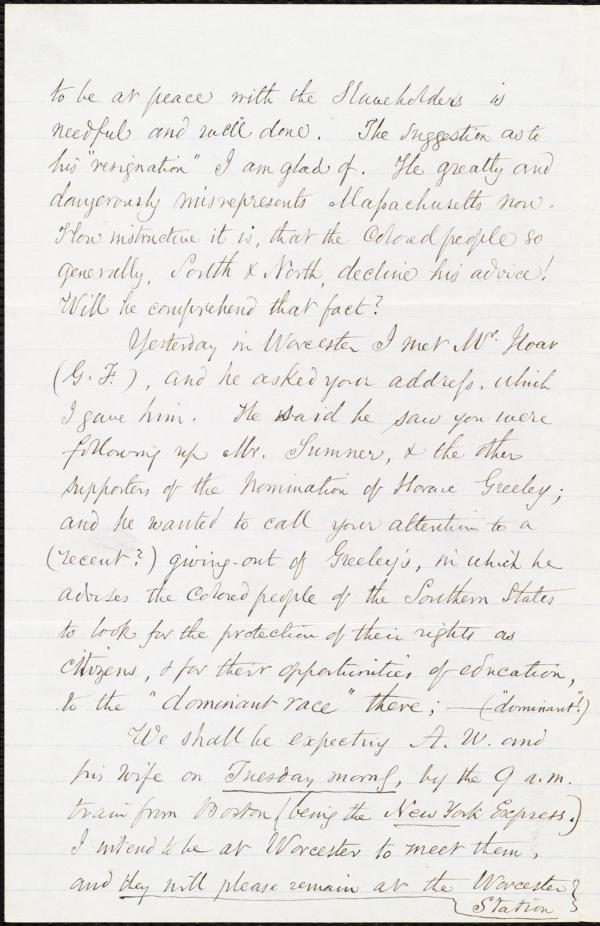 to be at peace with the Slaveholders is
needful and well done. The suggestion as to
his "resignation" I am glad of. He greatly and
dangerously misrepresents Massachusetts now.
How instructive it is, that the Colored people so
generally, South & North, decline his advice!
Will he comprehend that fact?
Yesterday in Worcester I met Mr. Hoar
(G. F.), and he asked your address, which
I gave him. He said he saw you were
following up Mr. Sumner, & the other
supporters of the Nomination of Horace Greeley;
and he wanted to call your attention to a
(recent?) giving-out of Greeley's, in which he
advises the Colored people of the Southern States
to look for the protection of their rights as
citizens, & for their opportunities of education,
to the "dominant race" there; — ("dominant"!)
We shall be expecting A. W. and
his wife on Tuesday morng, by the 9 a.m.
train from Boston (being the New York Express.)
I intend to be at Worcester to meet them,
and they will please remain at the Worcester
Station